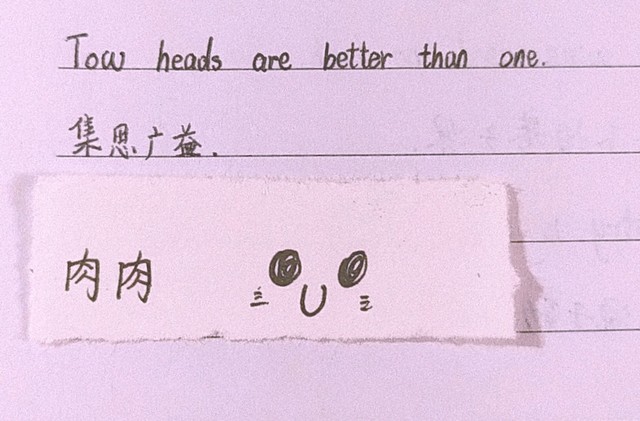 Tow heads are better than one.
集思广益.
肉肉